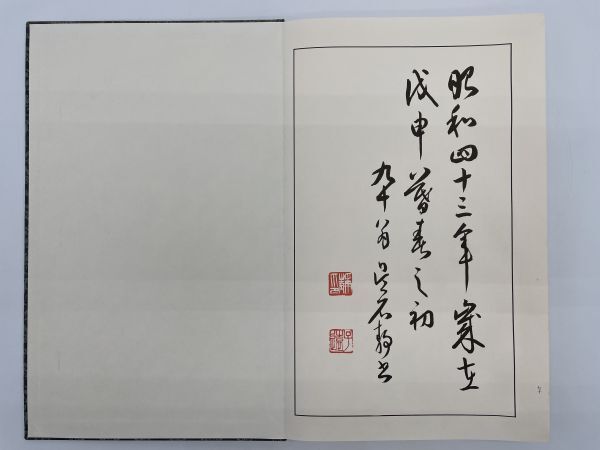 昭和四十三年歳在
戊申暮春之初
九十翁呉石静書